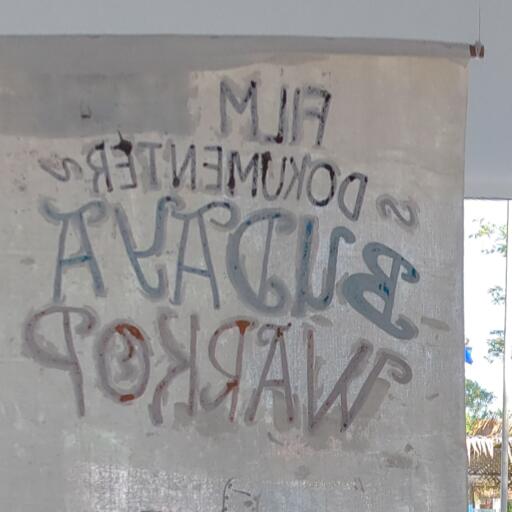 FILM
~ DOKUMENTER ~
BUDAYA
WARKOP